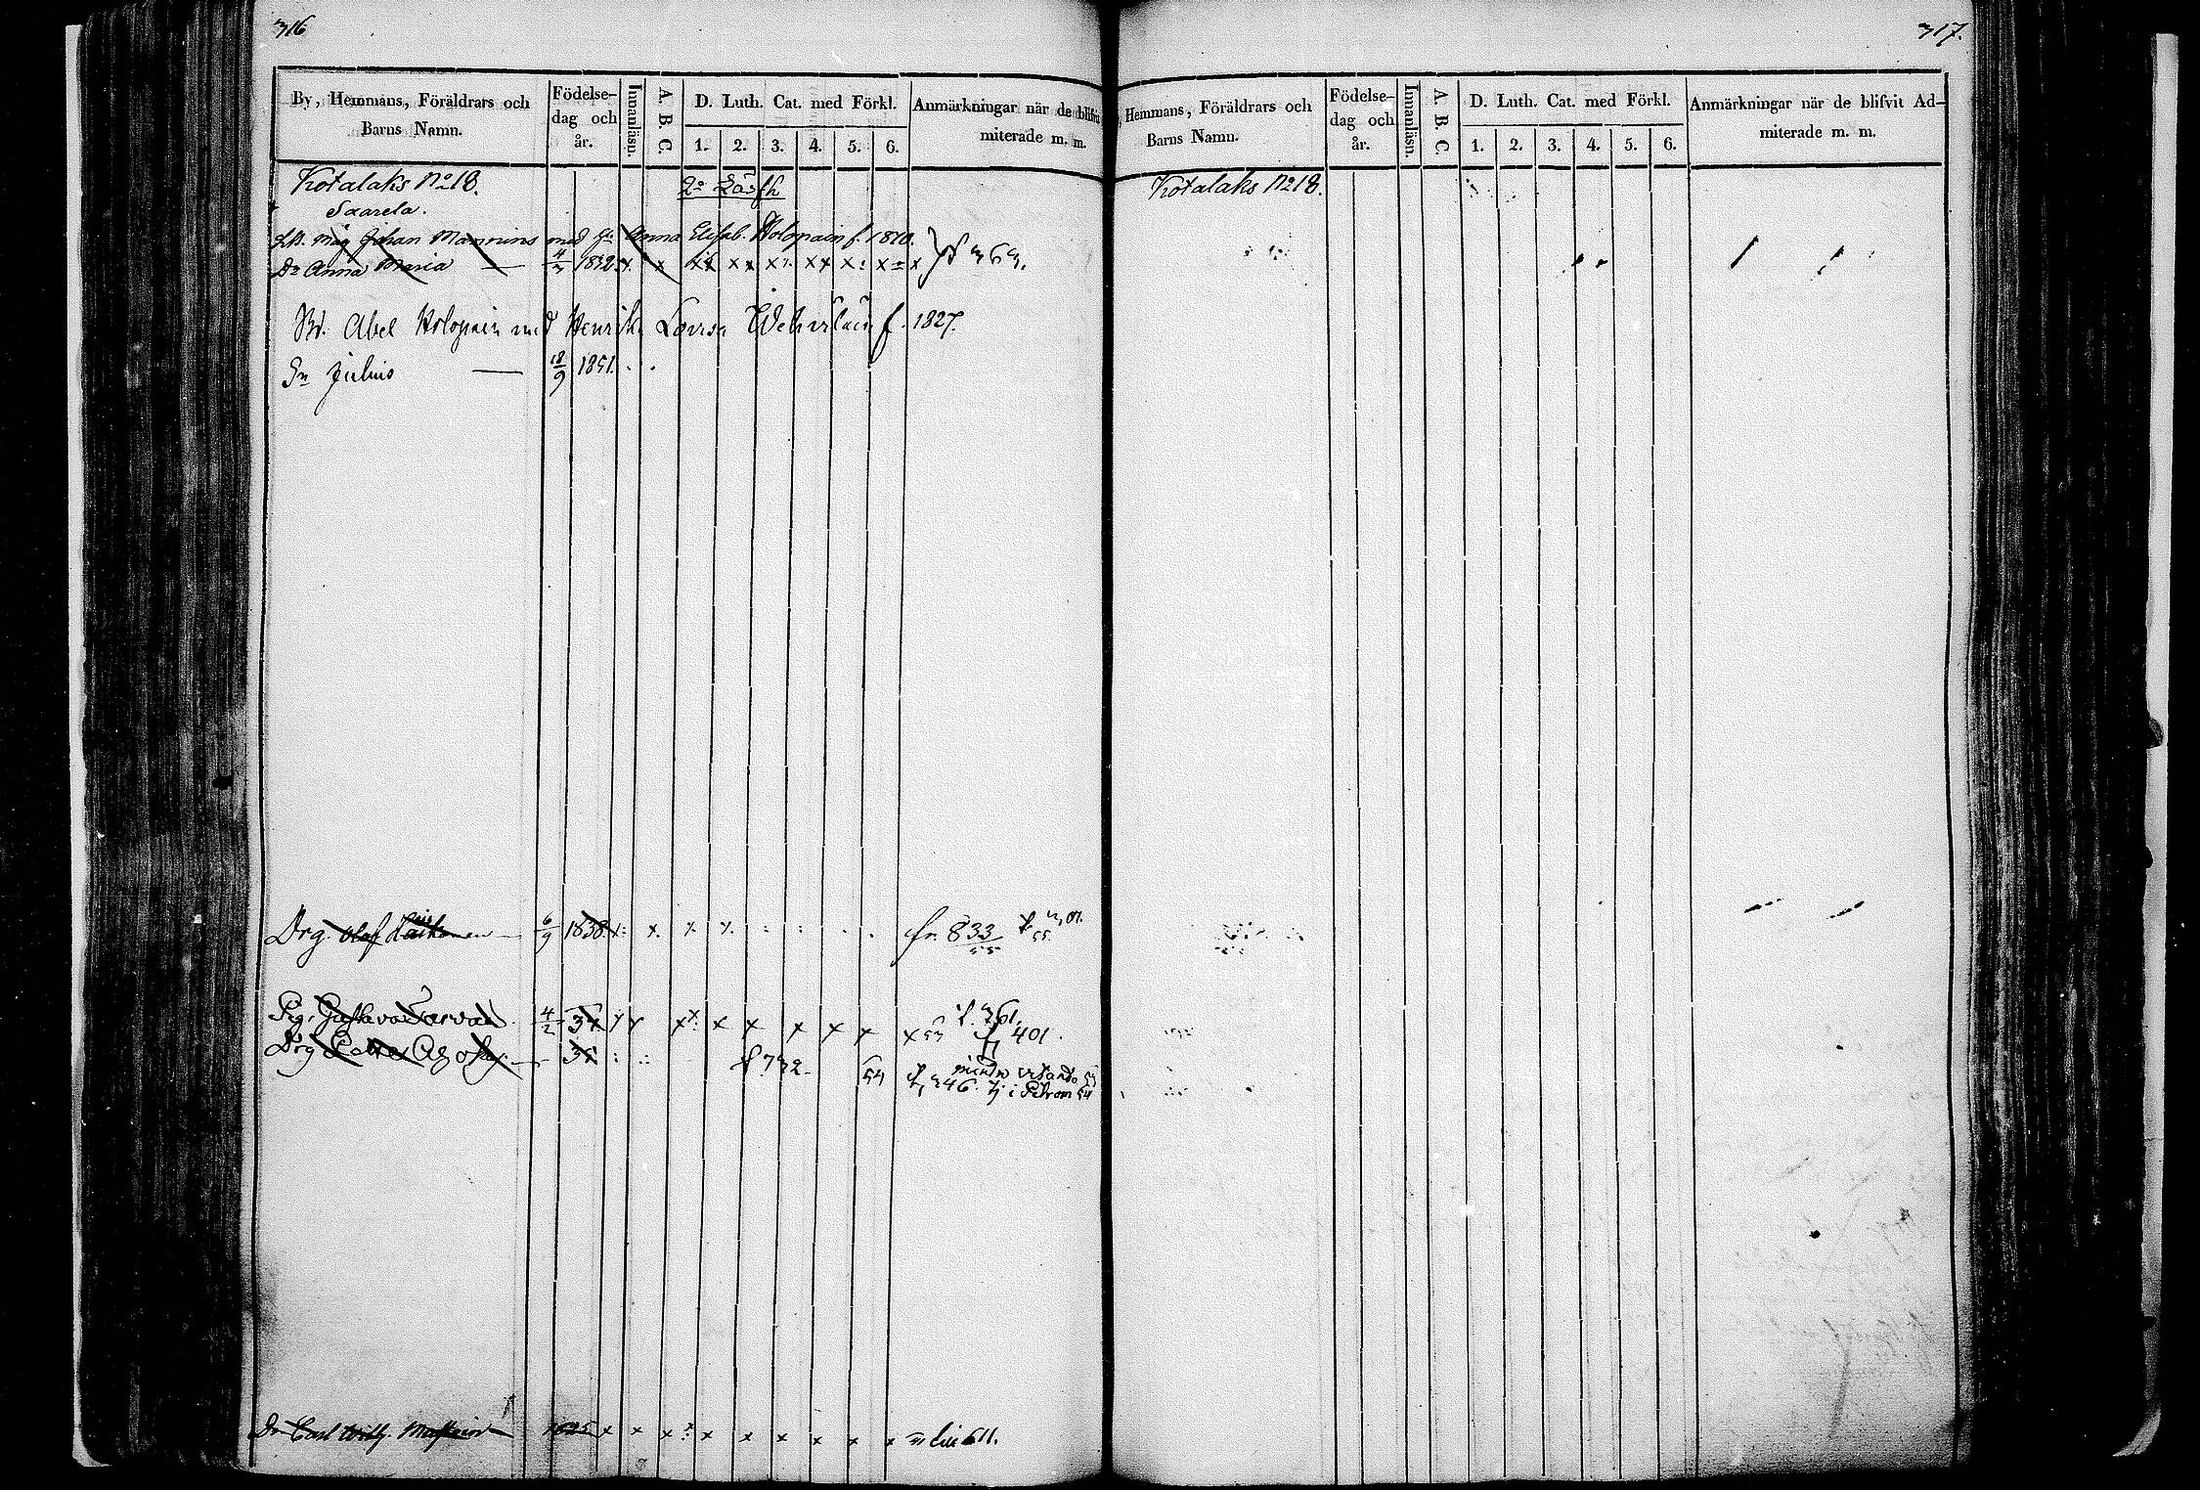 316
By, Hemmans, Föräldrars och Barns Namn.
Födelse-dag och år.
Innanläsn.
A. B. C.
D. Luth. Cat. med Förkl.
1. 2. 3. 4. 5. 6.
Anmärkningar när de blifvi
miterade m. m.
Kotalaks No 18.
Saarela.
Måg Johan Mannins med Hu Anna Elisab. Holopain f. 1810.
Dr Anna Maria 4/3 1832. x x x x x x x x 363.
Br. Abel Holopain med Henrika Lovisa Wehvilain f. 1827.
Sn Julius 18/9 1851.
Drg. Olaf 6/9 1838. fr. 833/55
Pig. Gustava 4/2 34 x x x x x x x 53 f. 361.
401.
Drg Petter 35 f 732. 54
346. tj i Petrom 54
Carl Wilh. 1825 x x x x x x x x x 611.
317.
, Hemmans, Föräldrars och
Barns Namn.
Födelse-dag och år.
Innanläsn.
A. B. C.
D. Luth. Cat. med Förkl.
1. 2. 3. 4. 5. 6.
Anmärkningar när de blifvit Ad-
miterade m. m.
Kotalaks No 18.